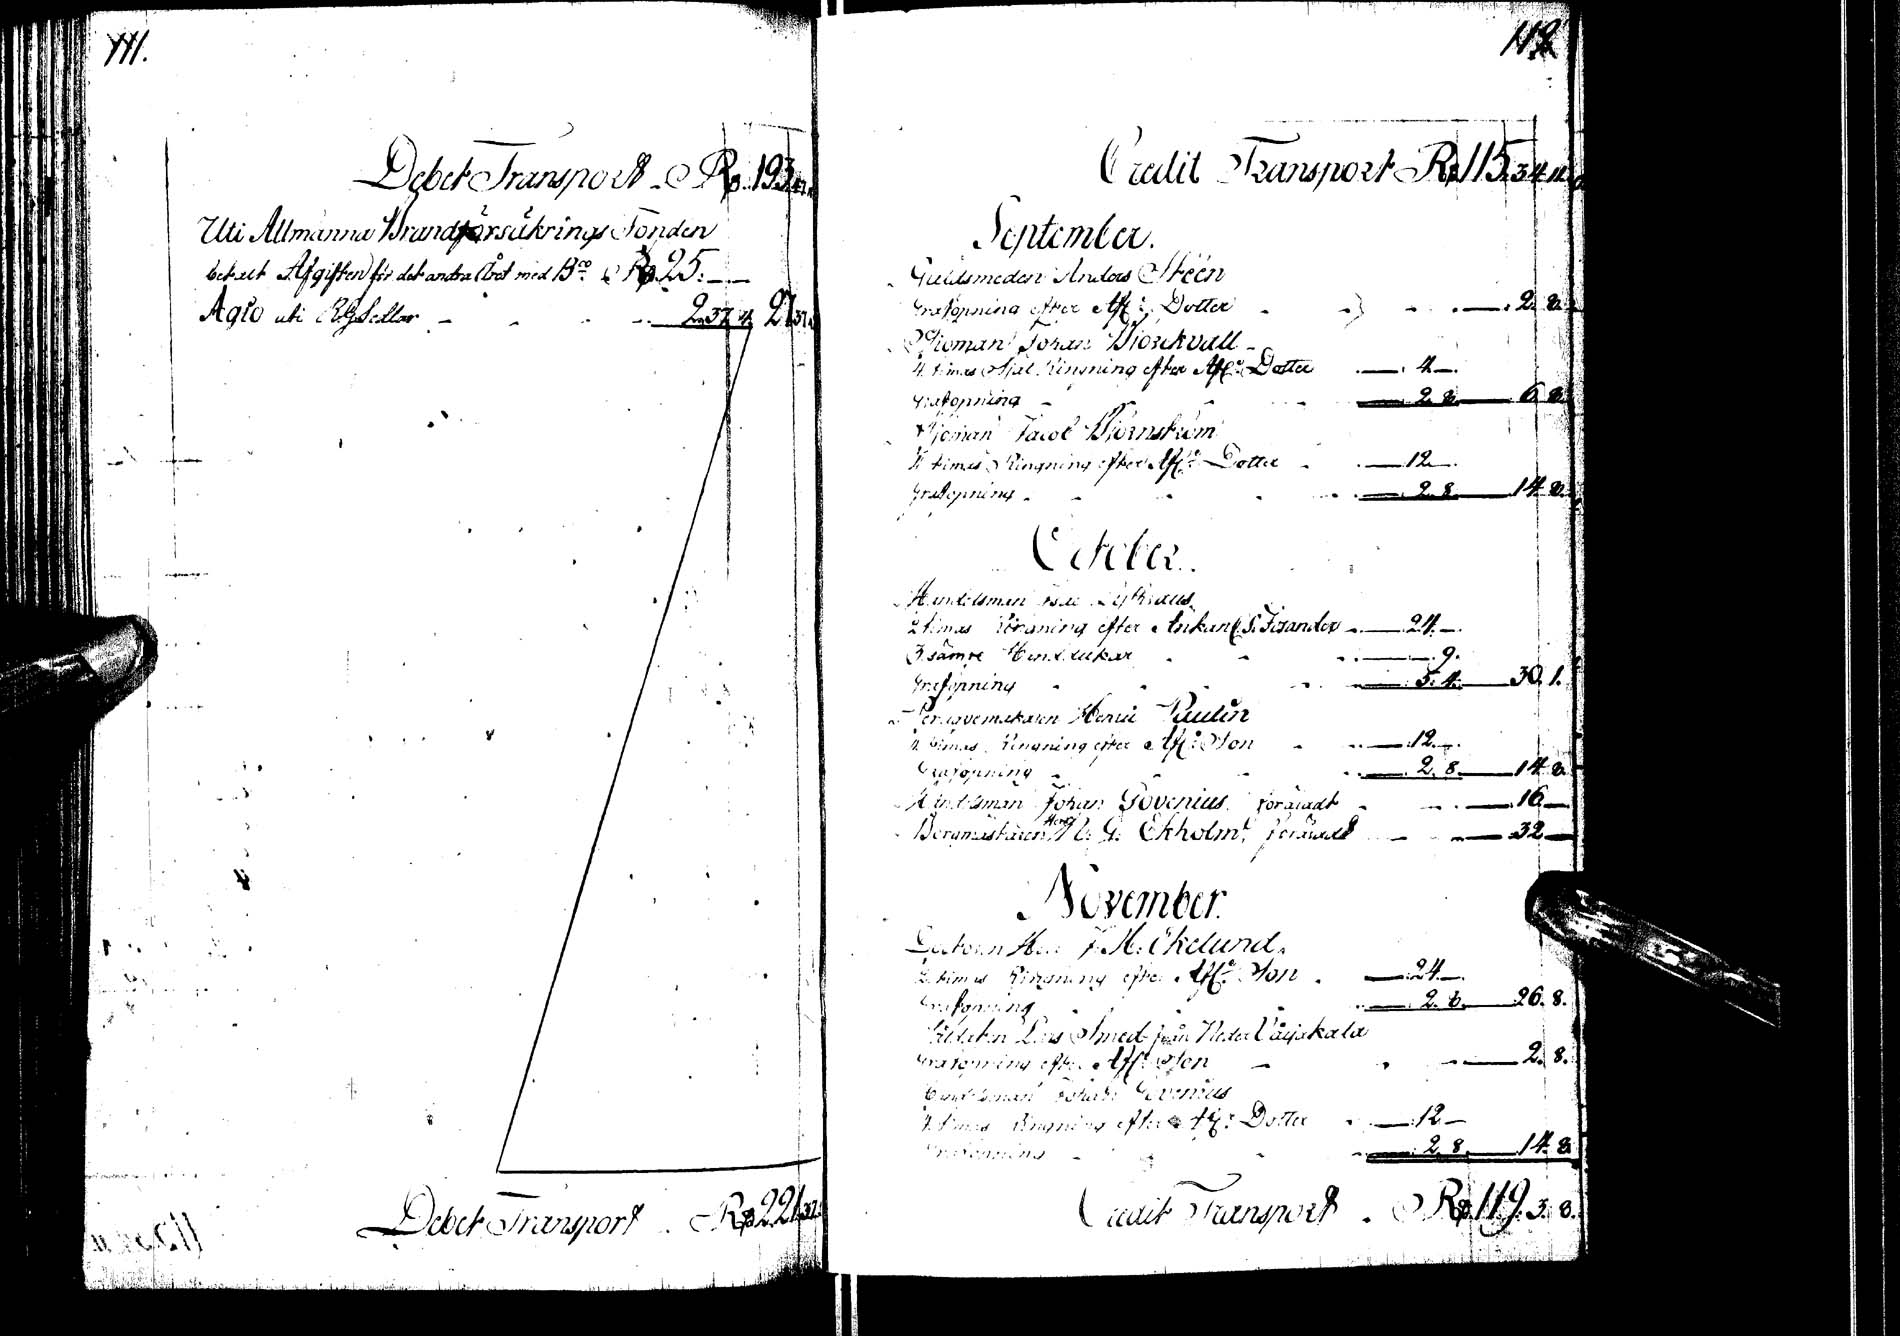 111.
Debet Transport Rd. 193.
Uti Allmänna Brandförsäkrings Fonden
betalt Afgiften för det andra året med Bco Rd 25.
Agio uti RGSedlar 2.37.4. 27.37.
Debet Transport Rd 221.
112
Credit Transport Rd 115.34.11.
September.
Guldsmeden Anders Steen
Graföpning efter Afl: Dotter 2.8.
Johan Biörkvall
Själ Ringning efter Afl: Dotter 4.
Graföpning 2.8. 6.8.
Jacob Biörnström
Ringning efter Afl: Dotter 12.
Graföpning 2.8. 14.8.
October.
Handelsman
2 timas Ringning efter Enkan C. S. Fisander 24.
3 sämre 9.
Graföpning 5.4. 30.1.
Paulin
Ringning efter Afl: Son 12.
Graföpning 2.8. 14.8.
Handelsman Johan Govenius föräradt 16.
Borgmästaren Herr N: G: Ekholm, föräradt 32.
November.
Herr J. H. Ekelund.
2 timas Ringning efter Afl: Son 24.
Graföpning 2.8. 26.8.
Lars Smed från Neder
Graföpning efter Afl: Son 2.8.
Handelsman Johan Govenius
Ringning efter Afl: Dotter 12.
Graföpning 2.8. 14.8.
Credit Transport Rd 119.3.8.